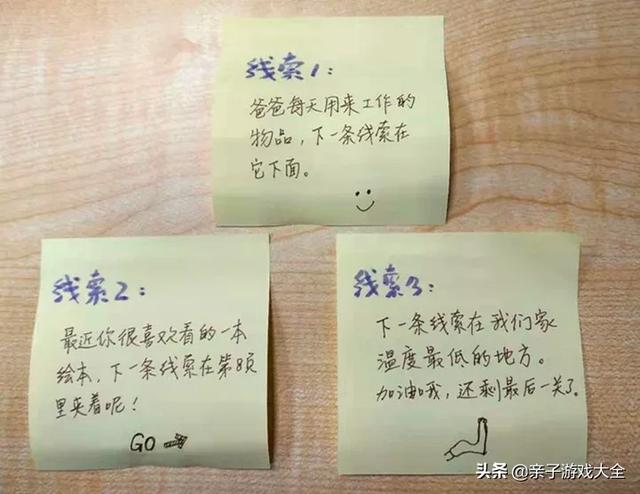 线索1：
爸爸每天用来工作的
物品，下一条线索在
它下面。
线索2：
最近你很喜欢看的一本
绘本，下一条线索在第8页
里夹着呢！
GO
线索3：
下一条线索在我们家
温度最低的地方。
加油哦，还剩最后一关了。
头条@亲子游戏大全